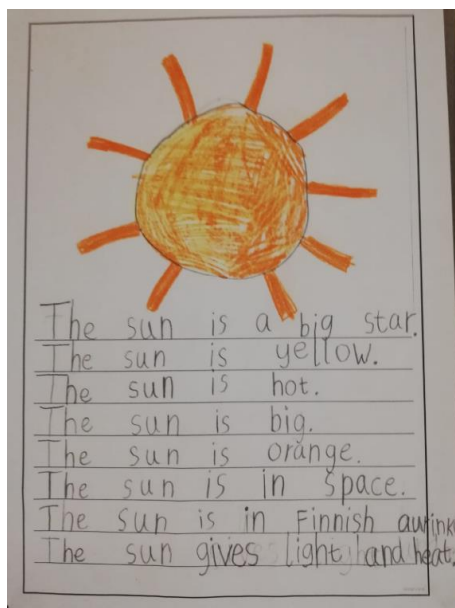 The sun is a big star.
The sun is yellow.
The sun is hot.
The sun is big.
The sun is orange.
The sun is in space.
The sun is in Finnish aurinko
The sun gives light and heat.